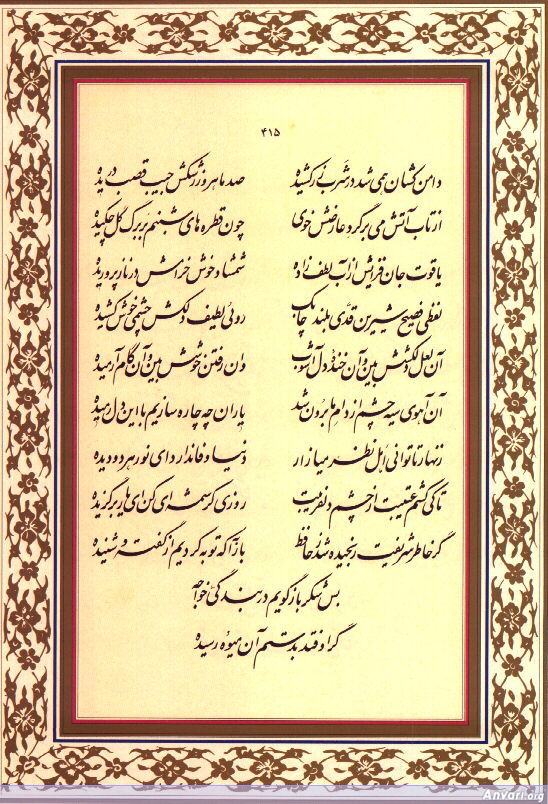 ۴۱۵
دامن کشان همی شد در شرب زر کشیده صد ماهرو ز رشکش جیب قصب دریده
از تاب آتش می بر گرد عارضش خوی چون قطره های شبنم بر برگ گل چکیده
یاقوت جان فزایش از آب لطف زاده شمشاد خوش خرامش در ناز پروریده
لفظی فصیح شیرین قدی بلند چابک روئی لطیف دلکش چشمی خوش کشیده
آن لعل دلکشش بین وآن خنده دل آشوب وان رفتن خوشش بین وآن گام آرمیده
آن آهوی سیه چشم از دام ما برون شد یاران چه چاره سازیم با این دل رمیده
زنهار تا توانی اهل نظر میازار دنیا وفا ندارد ای نور هر دو دیده
تا کی کشم عتیبت از چشم دلفریبت روزی کرشمه ای کن ای یار برگزیده
گر خاطر شریفت رنجیده شد ز حافظ بازآ که توبه کردیم از گفته و شنیده
بس شکر باز گویم در بندگی خواجه
گر اوفتد بدستم آن میوه رسیده
AnVari.org